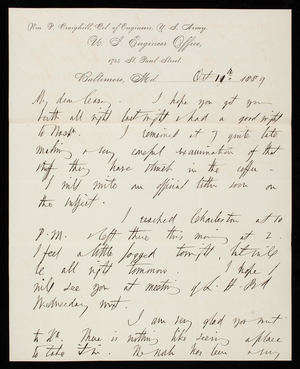 Wm. P. Craighill, Col. of Engineers, U. S. Army.
U. S. Engineer Office,
1735 St. Paul Street
Baltimore, Md Oct 11th 1889
My dear Casey. I hope you got your
berth all right last night & had a good night
to Wash. I remained at 7 quite late
making a very careful examination of that
stuff they have struck in the coffer –
I will write an official letter soon on
the subject.
I reached Charleston at 10
P.M. & left there this morning at 2.
I feel a little fagged tonight, but will
be all right tomorrow. I hope I
will see you at meeting of L. H. Bd
Wednesday next.
I am very glad you went
to No. There is nothing like seeing a place
to take it in. has been a very